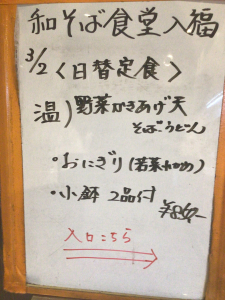 和そば食堂入福
3/2〈日替定食〉
温)野菜かきあげ天
そばうどん
・おにぎり(若菜わかめ)
・小鉢 2品付
入口こちら